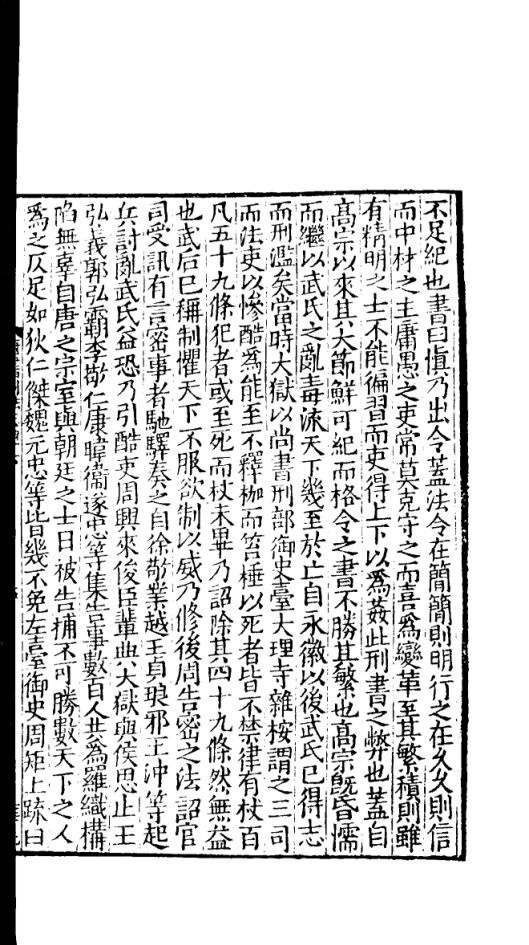 不足紀也書曰慎乃出令蓋法令在簡簡則明行之在久久則信
而中材之主庸愚之吏常莫克守之而喜爲變革至其繁積則雖
有精明之士不能徧習而吏得上下以爲姦此刑書之弊也蓋自
髙宗以來其大節鮮可紀而格令之書不勝其繁也髙宗旣昏懦
而繼以武氏之亂毒流天下幾至於亡自永徽以後武氏已得志
而刑濫矣當時大獄以尚書刑部御史臺大理寺雜桉謂之三司
而法吏以慘酷爲能至不釋枷而笞棰以死者皆不禁律有杖百
凡五十九條犯者或至死而杖未畢乃詔除其四十九條然無益
也武后已稱制懼天下不服欲制以威乃修後周告密之法詔官
司受訊有言密事者馳驛奏之自徐敬業越王貞琅邪王沖等起
兵討亂武氏益恐乃引酷吏周興來俊臣輩典大獄與侯思止王
弘義郭弘霸李敬仁康暐衞遂忠等集告事數百人共爲羅織構
陷無辜自唐之宗室與朝廷之士日被告捕不可勝數天下之人
爲之仄足如狄仁傑魏元忠等皆幾不免左臺御史周矩上疏曰